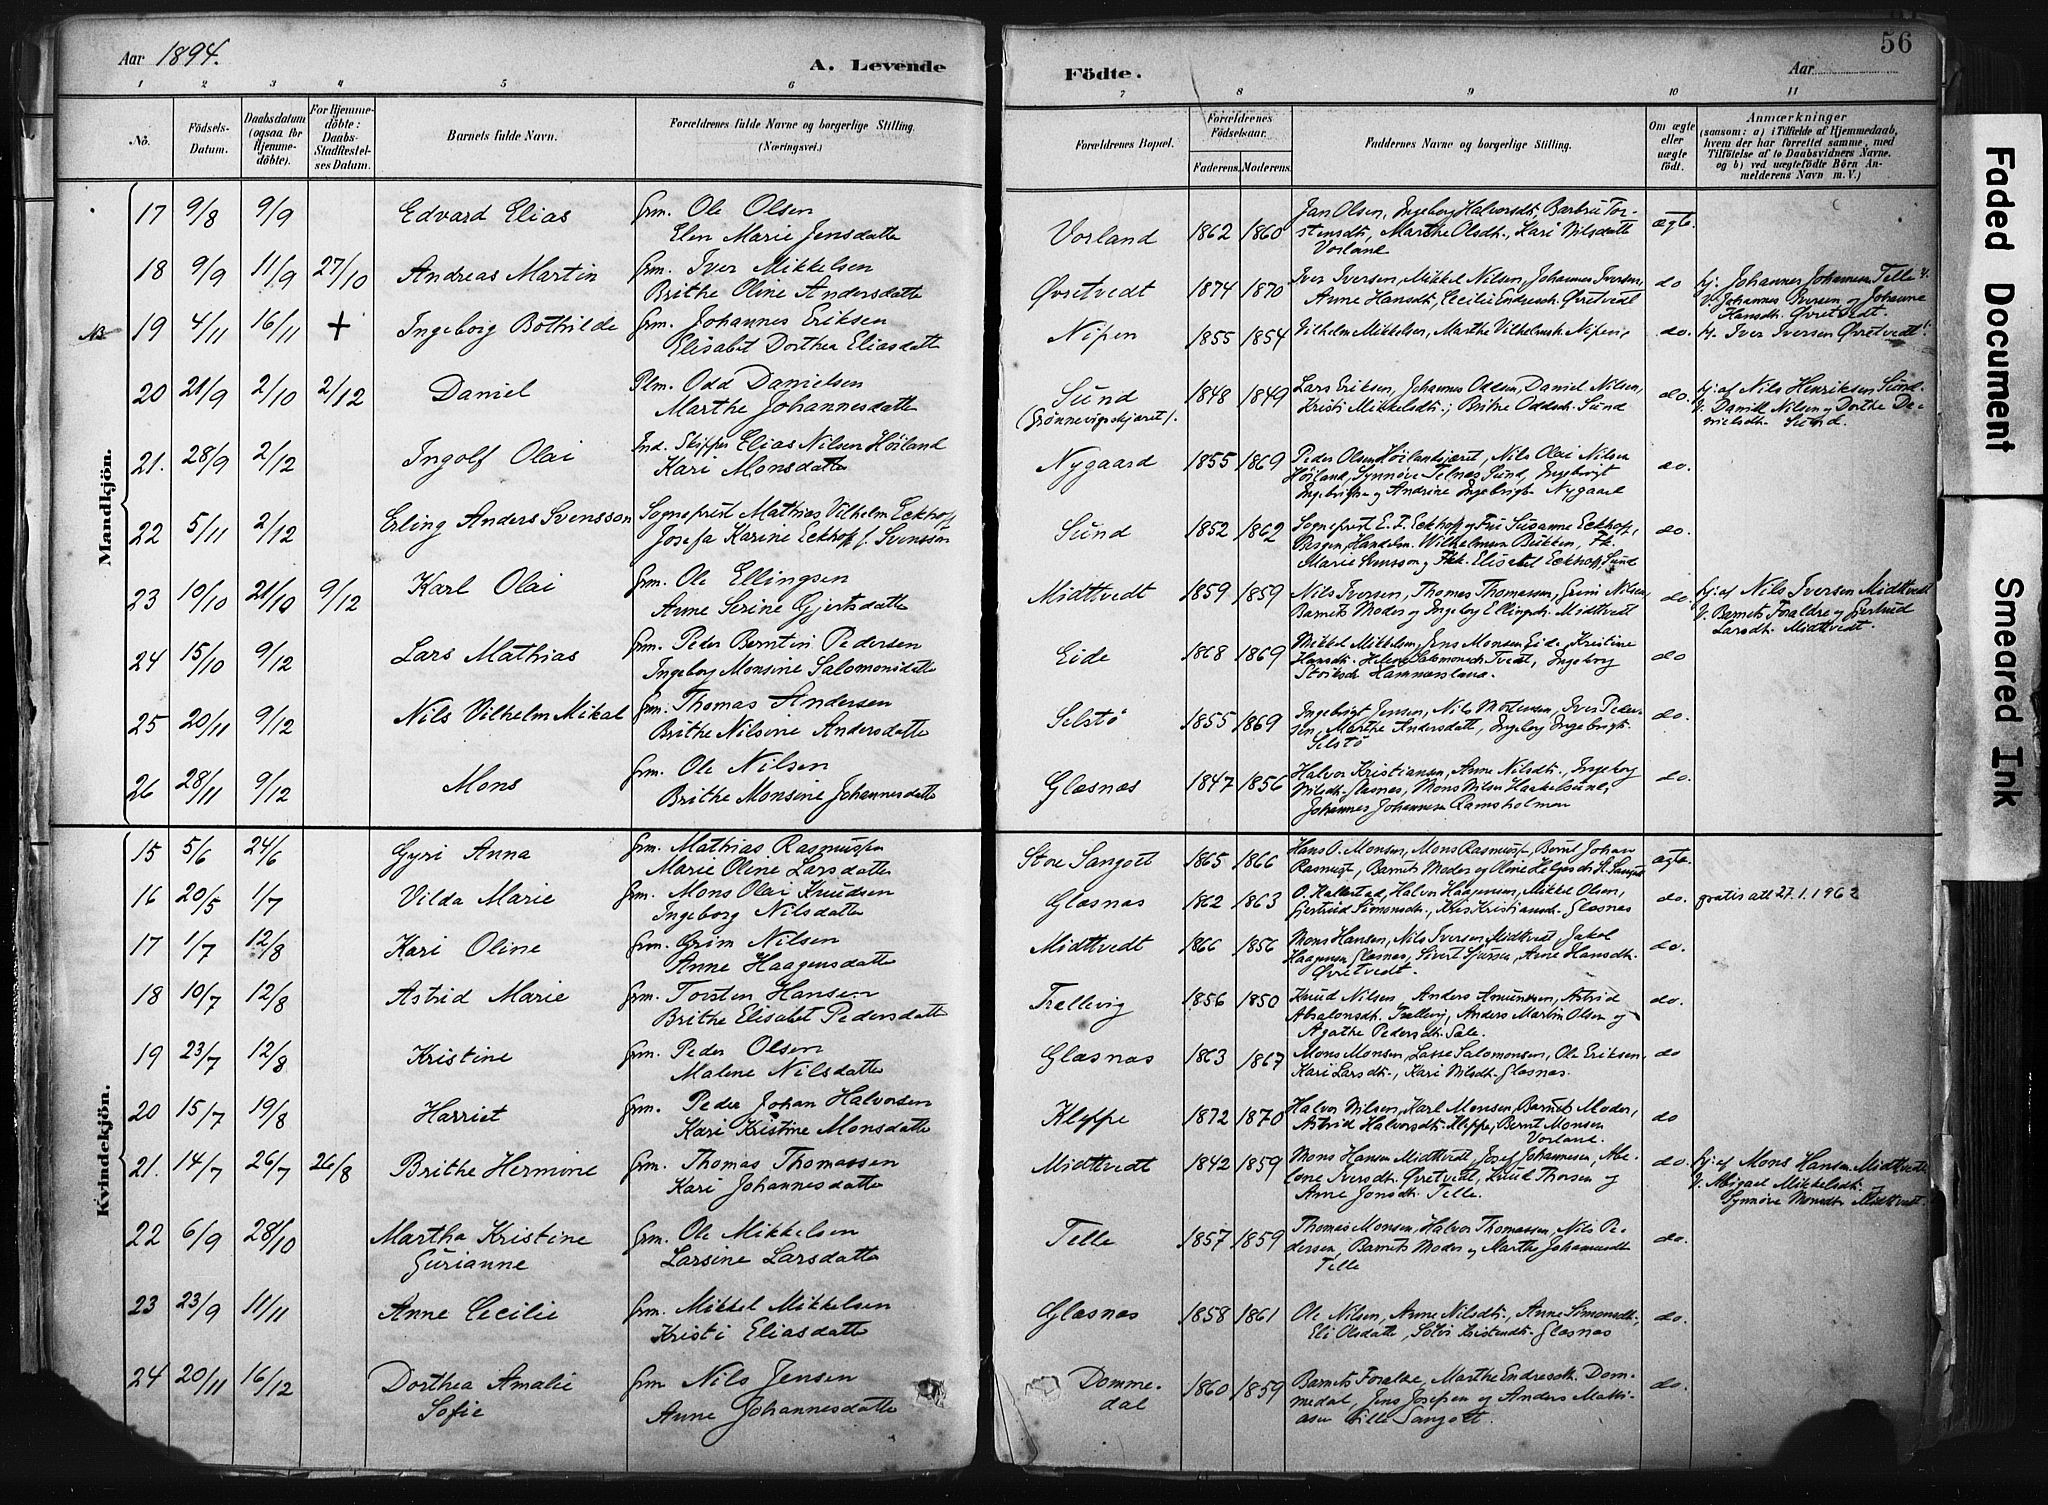 Aar 1894.
A. Levende
Födte.
Aar
56
1 2 3 4 5 6 7 8 9 10 11
No.
Födsels-Datum.
Daabsdatum (ogsaa for Hjemmedöbte).
For Hjemmedöbte: Daabs-Stadfæstelses Datum.
Barnets fulde Navn.
Forældrenes fulde Navne og borgerlige Stilling. (Næringsvei.)
Forældrenes Bopæl.
Forældrenes Födselsaar.
Faderens. Moderens.
Faddernes Navne og borgerlige Stilling.
Om ægte eller uægte født.
Anmærkninger
(saasom: a) i Tilfælde af Hjemmedaab, hvem der har forrettet samme, med Tilföielse af to Daabsvidners Navne. og b) ved uægtefödte Börn Anmelderens Navn m. V.)
Mandkjön.
17 9/8 9/9 Edvard Elias Grm. Ole Olsen
Elen Marie Jensdatter
Vorland 1862 1860 Jan Olsen, Ingeborg Halvorsdt., Barbru Tor-
stensdt., Marthe Olsdt., Kari Nilsdatter
Vorland ægte.
18 9/9 11/9 27/10 Andreas Martin Grm. Iver Mikkelsen
Brithe Oline Andersdatter
Øvretvedt 1874 1870 Iver Iversen, Mikkel Nilsen, Johannes Iversen,
Anne Hansdt., Cecilie Endresdt. Øvretvedt do hj. Johannes Johannesen Telle
V. Johannes Iversen og Johanne
Hansdt. Øvretvedt.
NB 19 4/11 16/11 + Ingeborg Bothilde Grm. Johannes Eriksen
Elisabet Dorthea Eliasdatter
Nipen 1855 1854 Vilhelm Mikkelsen, Marthe Vilhelmsdt. Nipen, do. hj. Iver Iversen Øvretvedt
20 21/9 2/10 2/12 Daniel Plm. Odd Danielsen
Marthe Johannesdatter
Sund
(Grønnevigskjæret). 1848 1849 Lars Eriksen, Johannes Odsen, Daniel Nilsen,
Kristi Mikkelsdt., Brithe Oddsdt. Sund do. hj. af Nils Henriksen Sund
V. Daniel Nilsen og Dorthe Da-
nielsdt. Sund.
21. 28/9 2/12 Ingolf Olai Ind. Skipper Elias Nilsen Höiland
Kari Monsdatter
Nygaard 1855 1869 Peder Olsen Höilandsjæret, Nils Olai Nilsen
Höiland, Synnöve Telnes Sund, Ingebrigt
Ingebrigts. og Andrine Ingebrigts. Nygaard do.
22 5/11 2/12 Erling Anders Svensson Sogneprest Mathias Vilhelm Eckhoff
Josefa Karine Eckhoff f. Svensson
Sund 1852 1862 Sogneprest E. T. Eckhoff og Fru Susanne Eckhoff,
Bergen, Handelsm. Wilhelmsen Bukken, Frk.
Marie Svensson og Frk. Elisabet Eckhoff Sund do.
23 10/10 21/10 9/12 Karl Olai Grm. Ole Ellingsen
Anne Serine Gjertsdatter
Midttvedt 1859 1859 Nils Iversen, Thomas Thomassen, Grim Nilsen,
Barnets Moder og Ingeborg Ellingsdt. Midttvedt do. hj. af Nils Iversen Midttvedt
V. Barnets Forældre og Gjertrud
Larsdt. Midttvedt.
24 15/10 9/12 Lars Mathias Grm. Peder Berntin Pedersen
Ingeborg Monsine Salomonsdatter
Eide 1868 1869 Mikkel Mikkelsen, Jens Monsen Eide, Kristine
Hansdt. Helene Salomonsdt. Tvedt, Ingeborg
Hammersland. do
25 20/11 9/12 Nils Vilhelm Mikal Grm. Thomas Andersen
Brithe Nilsine Andersdatter
Selstö 1855 1869 Ingebrigt Jensen, Nils Mortensen, Iver Peder-
sen, Marthe Andersdatter, Ingeborg Ingebrigts.
Selstö do.
26 28/11 9/12 Mons Grm. Ole Nilsen
Brithe Monsine Johannesdatter
Glesnæs 1847 1856 Halvor Kristiansen, Anne Nilsdt., Ingeborg
Nilsdt. Glesnæs, Mons Nilsen Haakelsund,
Johannes Johannesen Ramsholmen do.
Kvindekjön.
15 5/6 24/6 Gyri Anna Grm. Mathias Rasmussen
Marie Oline Larsdatter
Store Sangolt 1865 1866 Hans O. Monsen, Mons Rasmuss., Bernt Johan
Rasmuss., Barnets Moder og Oline Helgesdt. St. Sangolt ægte.
16 20/5 1/7 Vilda Marie Grm. Mons Olai Knudsen
Ingeborg Nilsdatter
Glesnæs 1862 1863 O. Hallestad, Halvor Haagensen, Mikkel Olsen,
Gjertrud Simonsdt., Kristiansdt. Glesnæs do. gratis att 27.1.1962
17 1/7 12/8 Kari Oline Grm. Grim Nilsen
Anne Haagensdatter
Midttvedt 1866 1856 Mons Hansen, Nils Iversen Midttvedt, Jakob
Haagensen Glesnæs, Sivert Sjursen, Anne Hansdt.
Øvretvedt. do.
18 10/7 12/8 Astrid Marie Grm. Torsten Hansen
Brithe Elisabet Pedersdatter
Trællevig 1856 1850 Knud Nilsen, Anders Amundsen, Astrid
Absalonsdt. Trællevig, Anders Martin Olsen og
Agathe Pedersdt. Sale. do.
19 23/7 12/8 Kristine Grm. Peder Olsen
Malene Nilsdatter
Glesnæs 1863 1867 Mons Monsen, Lasse Salomonsen, Ole Eriksen,
Kari Larsdt., Kari Nilsdt. Glesnæs. do
20 15/7 19/8 Harriet Grm. Peder Johan Halvorsen
Kari Kristine Monsdatter
Kleppe 1872 1870 Halvor Nilsen, Karl Monsen, Barnets Moder,
Astrid Halvorsdt. Kleppe, Bernt Monsen
Vorland. do
21. 14/7 26/7 26/8 Brithe Hermine Grm. Thomas Thomassen
Kari Johannesdatter
Midttvedt 1842 1859 Mons Hansen Midttvedt, Josef Johannesen, Abe-
lone Iversdt. Øvretvedt, Knud Thorsen og
Anne Jonsdt. Telle. do. hj. af Mons Hansen Midttvedt
V. Abigael Mikkelsdt.
Synnöve Monsdt. Midttvedt.
22 6/9 28/10 Martha Kristine
Gurianne Grm. Ole Mikkelsen
Larsine Larsdatter
Telle 1857 1859 Thomas Monsen, Halvor Thomassen, Nils Pe-
dersen, Barnets Moder og Marthe Johannesdt.
Telle do.
23 23/9 11/11 Anne Cecilie Grm. Mikkel Mikkelsen
Kristi Eliasdatter
Glesnæs 1858 1861 Ole Nilsen, Anne Nilsdt., Anne Simonsdt.,
Eli Olsdatter, Kristensdt. Glesnæs do.
24 20/11 16/12 Dorthea Amalie
Sofie Grm Nils Jensen
Anne Johannesdatter
Domme-
dal 1860 1859 Barnets Forældre, Marthe Endresdt. Dom-
medal, Jens Josefsen og Anders Mathi-
asen Lille Sangolt. do.
Faded Document
Smeared Ink